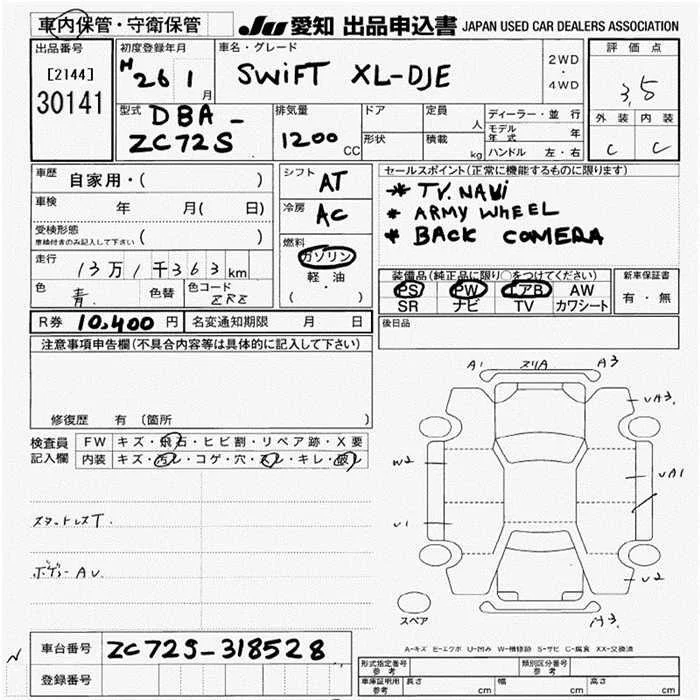 車内保管・守衛保管
JU 愛知 出品申込書 JAPAN USED CAR DEALERS ASSOCIATION
出品番号
[2144]
30141
初度登録年月
H 26 1 月
車名・グレード
SWiFT XL-DJE
2WD
・
4WD
評価点
3,5
外装 内装
C C
型式
DBA -
ZC72S
排気量
1200 CC
ドア
形状
定員 人
積載 kg
ディーラー・並行
モデル年式 年
ハンドル 左・右
車歴 自家用・( )
車検 年 月( 日)
受検形態
車検付きのみ記入して下さい ( )
走行 13万1千363km
色 青.
色替
色コード ZRZ
シフト AT
冷房 AC
燃料
ガソリン
軽・油
( )
セールスポイント(正常に機能するものに限ります)
* TV.NAVi
* ARMY WHEEL
* BACK COMERA
装備品(純正品に限り○をつけてください)
PS PW エアB AW
SR ナビ TV カワシート
新車保証書
有・無
R券 10,400 円
名変通知期限 月 日
後日品
注意事項申告欄(不具合内容等は具体的に記入して下さい)
修復歴 有 (箇所 )
検査員
記入欄
FW キズ・飛石・ヒビ割・リペア跡・X要
内装 キズ・汚レ・コゲ・穴・スレ・キレ・破レ
スタットレスT.
ボデーAU
A1 スリA A3
UA3
W2
UA1
U1
U2
A3
スペア
A-キズ E-エクボ U-凹み W-補修跡 S-サビ C-腐食 XX-交換済
N
車台番号 ZC72S-318528
登録番号
型式指定番号
参考
類別区分番号
参考
車庫証明用
参考
長さ cm
幅 cm
高さ cm